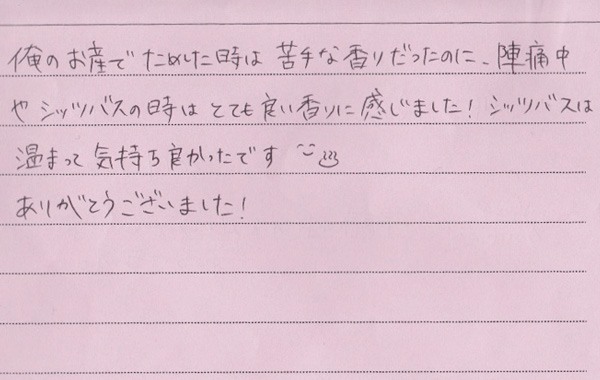 俺のお産で ためした時は 苦手な香りだったのに、陣痛中
や シッツバスの時は とても良い香りに 感じました! シッツバスは
温まって 気持ち良かったです
ありがとうございました!